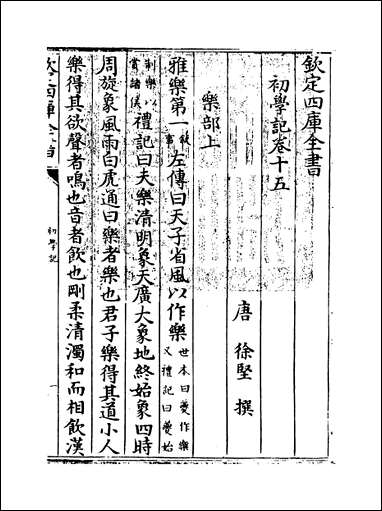 欽定四庫全書
初學記卷十五
唐 徐堅 撰
樂部上
雅樂第一 敘事 左傳曰天子省風以作樂 世本曰夔作樂又禮記曰夔始
制樂以賞諸侯 禮記曰夫樂清明象天廣大象地終始象四時
周旋象風雨白虎通曰樂者樂也君子樂得其道小人
樂得其欲聲者鳴也音者飲也剛柔清濁和而相飲漢
欽定四庫全書
初學記
一